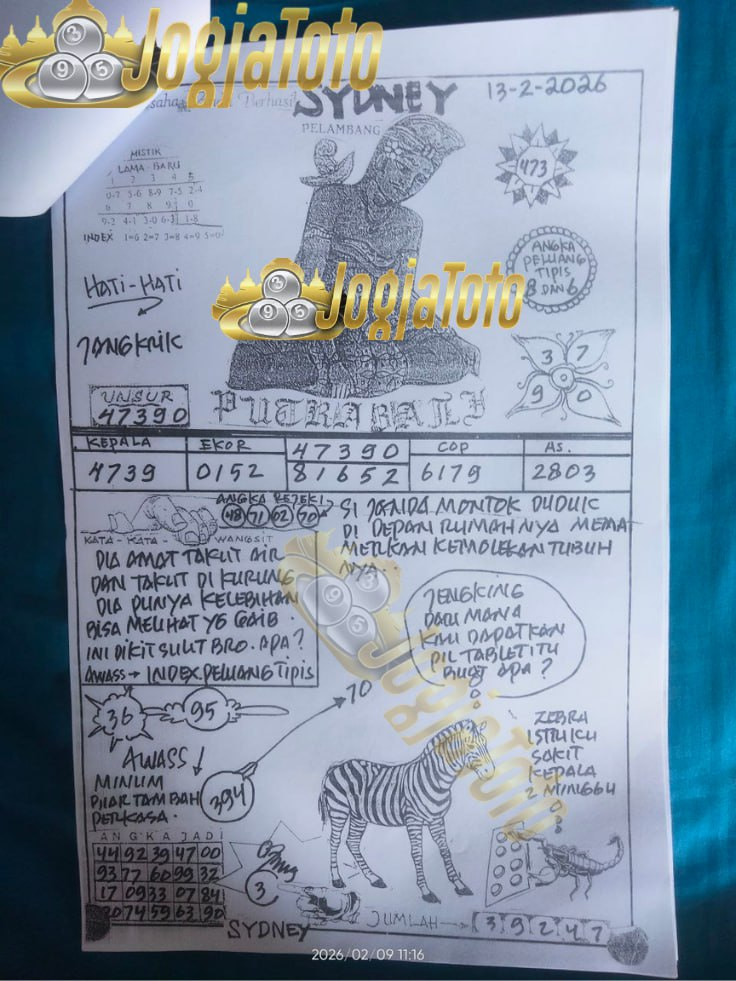 JogjaToto
3
9 5
Berhasil
SYDNEY
13-2-2026
PELAMBANG
MISTIK
LAMA - BARU
1 2 3 4 5
0-7 5-6 8-9 7-5 2-4
6 7 8 9 0
9-2 4-1 3-0 6-3 1-8
INDEX 1=6 2=7 3=8 4=9 5=0
473
ANGKA
PELUANG
TIPIS
8 DAN 6
HATI-HATI
JANGKRIK
JogjaToto
3
9 5
3 7
0
9 0
UNSUR
47390
PUTRA BALI
KEPALA EKOR 47390 COP AS.
4739 0152 81652 6179 2803
ANGKA REJEKI
48 71 02 70
KATA - KATA - WANGSIT
DIA AMAT TAKUT AIR
DAN TAKUT DI KURUNG
DIA PUNYA KELEBIHAN
BISA MELIHAT YG GAIB.
INI DIKIT SULIT BRO. APA?
AWASS → INDEX.PELUANG TIPIS
SI JANDA MONTOK DUDUK
DI DEPAN RUMAHNYA MEMA
MERKAN KEMOLEKAN TUBUH
NYA.
JENGKING
DARI MANA
KAU DAPATKAN
PIL TABLET ITU
BUAT APA?
JogjaToto
3
9 5
36
95
70
AWASS
394
MINUM
PERKASA.
ZEBRA
ISTRIKU
SAKIT
KEPALA
2 MINGGU
ANGKA JADI
44 92 39 47 00
93 77 60 99 32
17 09 33 07 84
20 74 59 63 90
3
JUMLAH → 3 9 2 4 7
SYDNEY
2026/02/09 11:16